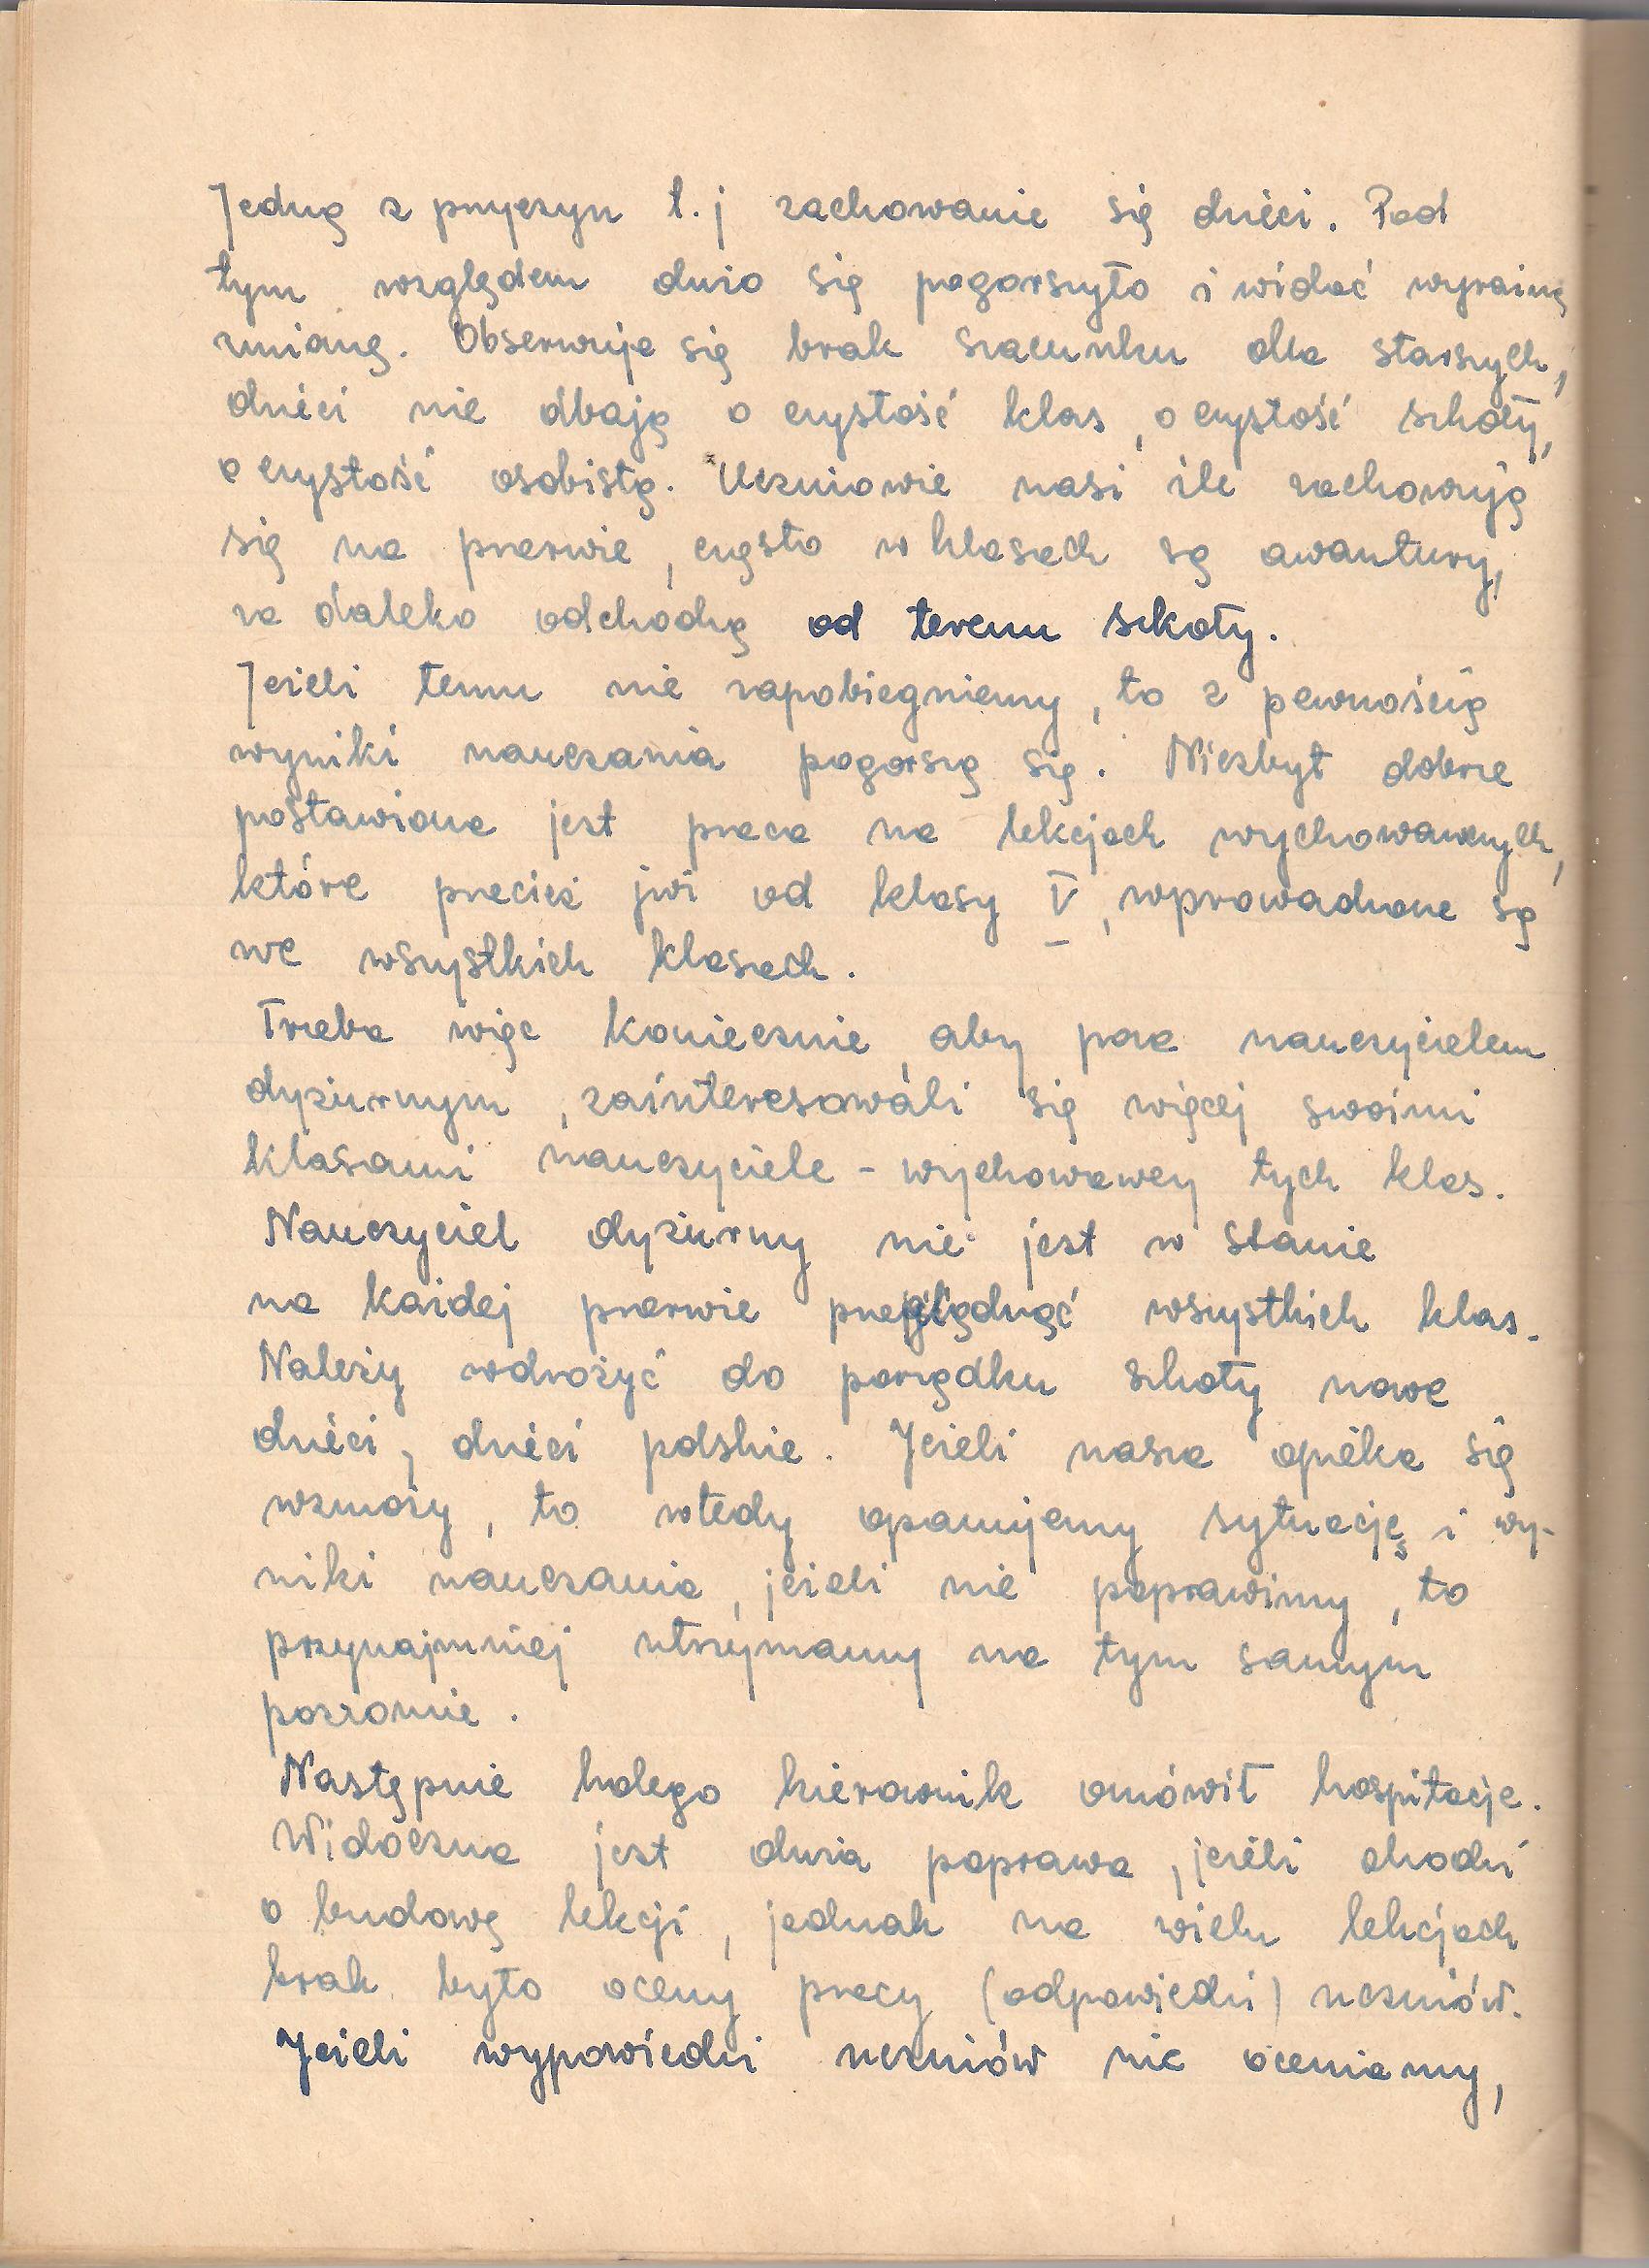 Jedną z przyczyn t.j zachowanie się dzieci. Pod
tym względem dużo się pogorszyło i widać wyraźną
zmianę. Obserwuje się brak szacunku dla starszych,
dzieci nie dbają o czystość klas, o czystość szkoły,
o czystość osobistą. Uczniowie nasi źle zachowują
się na przerwie, często w klasach są awantury,
za daleko odchodzą od terenu szkoły.
Jeżeli temu nie zapobiegniemy, to z pewnością
wyniki nauczania pogorszą się. Niezbyt dobrze
postawiona jest praca na lekcjach wychowawczych,
które przecież już od klasy V, wprowadzone są
we wszystkich klasach.
Trzeba więc koniecznie, aby poza nauczycielem
dyżurnym, zainteresowali się więcej swoimi
klasami nauczyciele - wychowawcy tych klas.
Nauczyciel dyżurny nie jest w stanie
na każdej przerwie przeglądnąć wszystkich klas.
Należy wdrożyć do porządku szkoły nowe
dzieci, dzieci polskie. Jeżeli nasza opieka się
wzmoży, to wtedy opanujemy sytuację i wy-
niki nauczania, jeżeli nie poprawimy, to
przynajmniej utrzymamy na tym samym
pozromie.
Następnie kolega kierownik omówił hospitacje.
Widoczna jest duża poprawa, jeżeli chodzi
o budowę lekcji, jednak na wielu lekcjach
brak było oceny pracy (odpowiedzi) uczniów.
Jeżeli wypowiedzi uczniów nie oceniamy,